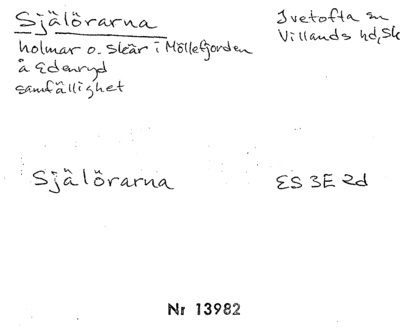 Själörarna
Ivetofta sn
Villands hd, Sk
holmar o. skär i Möllefjorden
å Edenryd
samfällighet
Själörarna
ES 3E 2d
Nr 13982